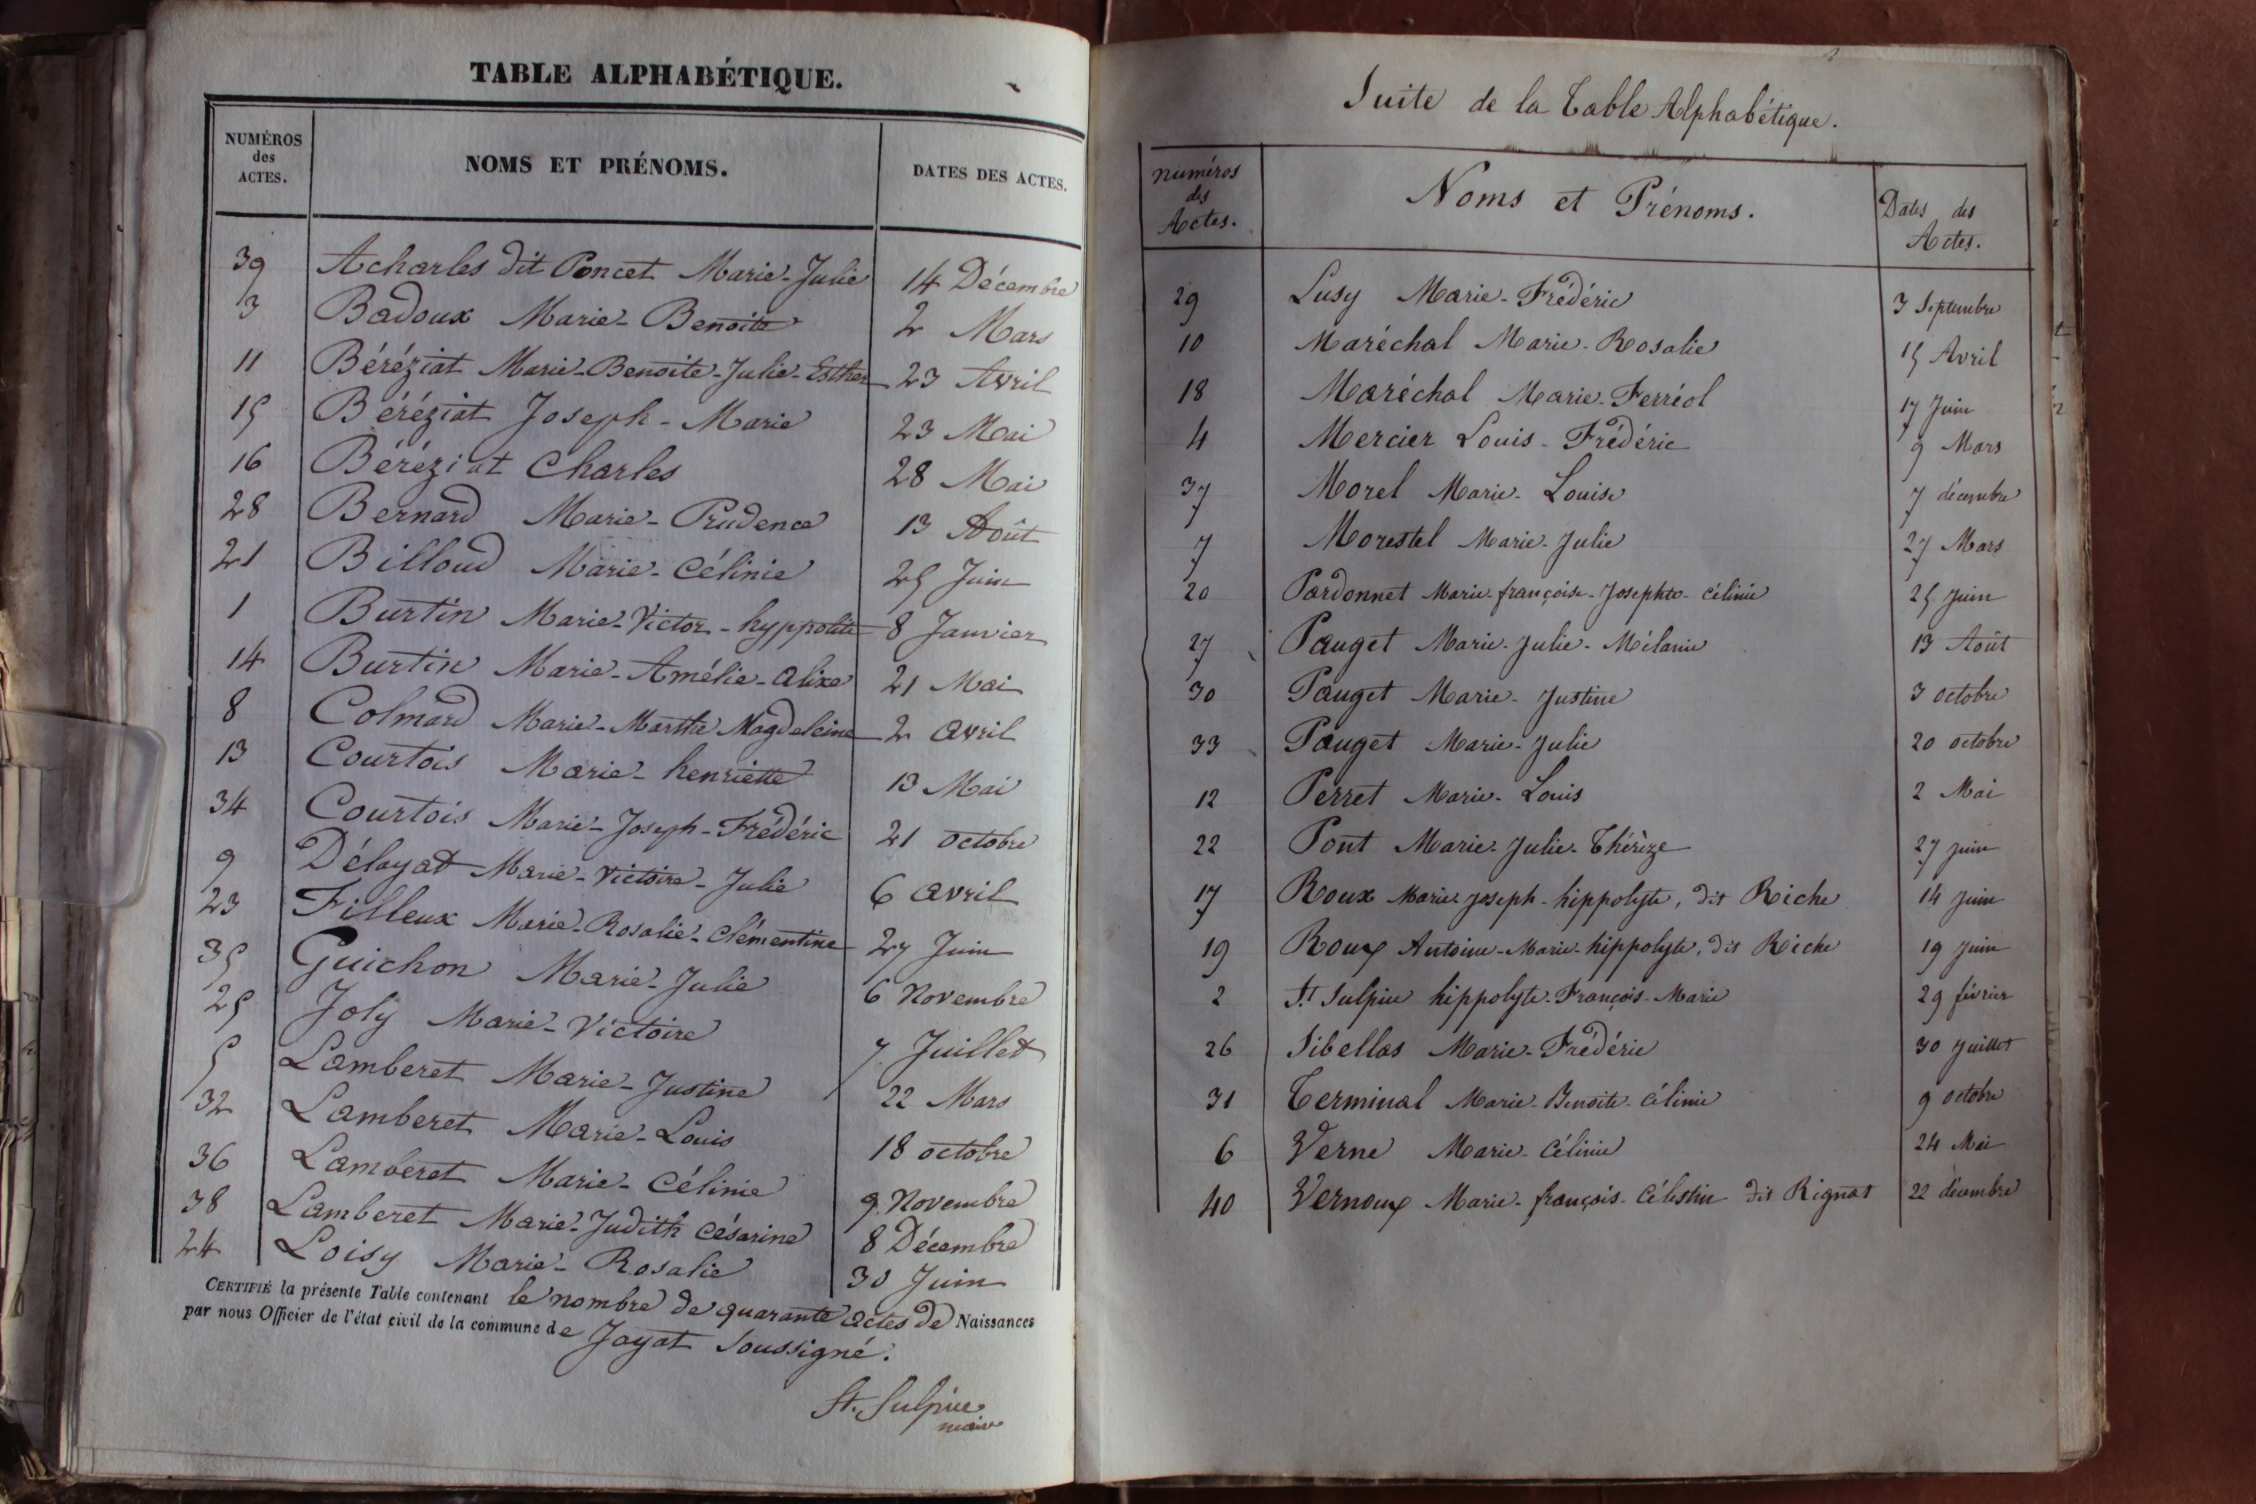 TABLE ALPHABÉTIQUE.
NUMÉROS des ACTES. NOMS ET PRÉNOMS. DATES DES ACTES.
39 Acharles dit Poncet Marie-Julie 14 Décembre
3 Badoux Marie-Benoite 2 Mars
11 Béréziat Marie-Benoite-Julie-Esther 23 Avril
15 Béréziat Joseph-Marie 23 Mai
16 Béréziat Charles 28 Mai
28 Bernard Marie-Prudence 13 Août
21 Billoud Marie-Célinie 25 Juin
1 Burtin Marie-Victor-hyppolite 8 Janvier
14 Burtin Marie-Amélie-alixe 21 Mai
8 Colmard Marie-Marthe Magdeleine 2 avril
13 Courtois Marie-henriette 13 Mai
34 Courtois Marie-Joseph-Frédéric 21 octobre
9 Délayat Marie-Victoire-Julie 6 avril
23 Filleux Marie-Rosalie-Clémentine 27 Juin
35 Guichon Marie-Julie 6 Novembre
25 Joly Marie-Victoire 7 Juillet
5 Lamberet Marie-Justine 22 Mars
32 Lamberet Marie-Louis 18 octobre
36 Lamberet Marie-Célinie 9 Novembre
38 Lamberet Marie-Judith Césarine 8 Décembre
24 Loisy Marie-Rosalie 30 Juin
CERTIFIÉ la présente Table contenant le nombre de quarante actes de Naissances
par nous Officier de l'état civil de la commune de Jayat soussigné.
St. Sulpice
maire
Suite de la Table Alphabétique.
Numéros des Actes. Noms et Prénoms. Dates des Actes.
29 Lusy Marie-Frédéric 3 Septembre
10 Maréchal Marie-Rosalie 15 Avril
18 Maréchal Marie-Ferréol 17 Juin
4 Mercier Louis-Frédéric 9 Mars
37 Morel Marie-Louise 7 décembre
7 Morestel Marie-Julie 27 Mars
20 Pardonnet Marie-françoise-Josephte-Célinie 25 Juin
27 Pauget Marie-Julie-Mélanie 13 Août
30 Pauget Marie-Justine 3 octobre
33 Pauget Marie-Julie 20 octobre
12 Perret Marie-Louis 2 Mai
22 Pont Marie-Julie-Thérèze 27 juin
17 Roux Marie Joseph-hippolyte, dit Riche 14 juin
19 Roux Antoine-Marie-hippolyte, dit Riche 19 juin
2 St Sulpice hippolyte-François-Marie 29 février
26 Sibellas Marie-Frédéric 30 Juillet
31 Terminal Marie-Benoite-Célinie 9 octobre
6 Verne Marie-Célinie 24 Mai
40 Vernoux Marie-françois-Célestin dit Rignat 22 décembre